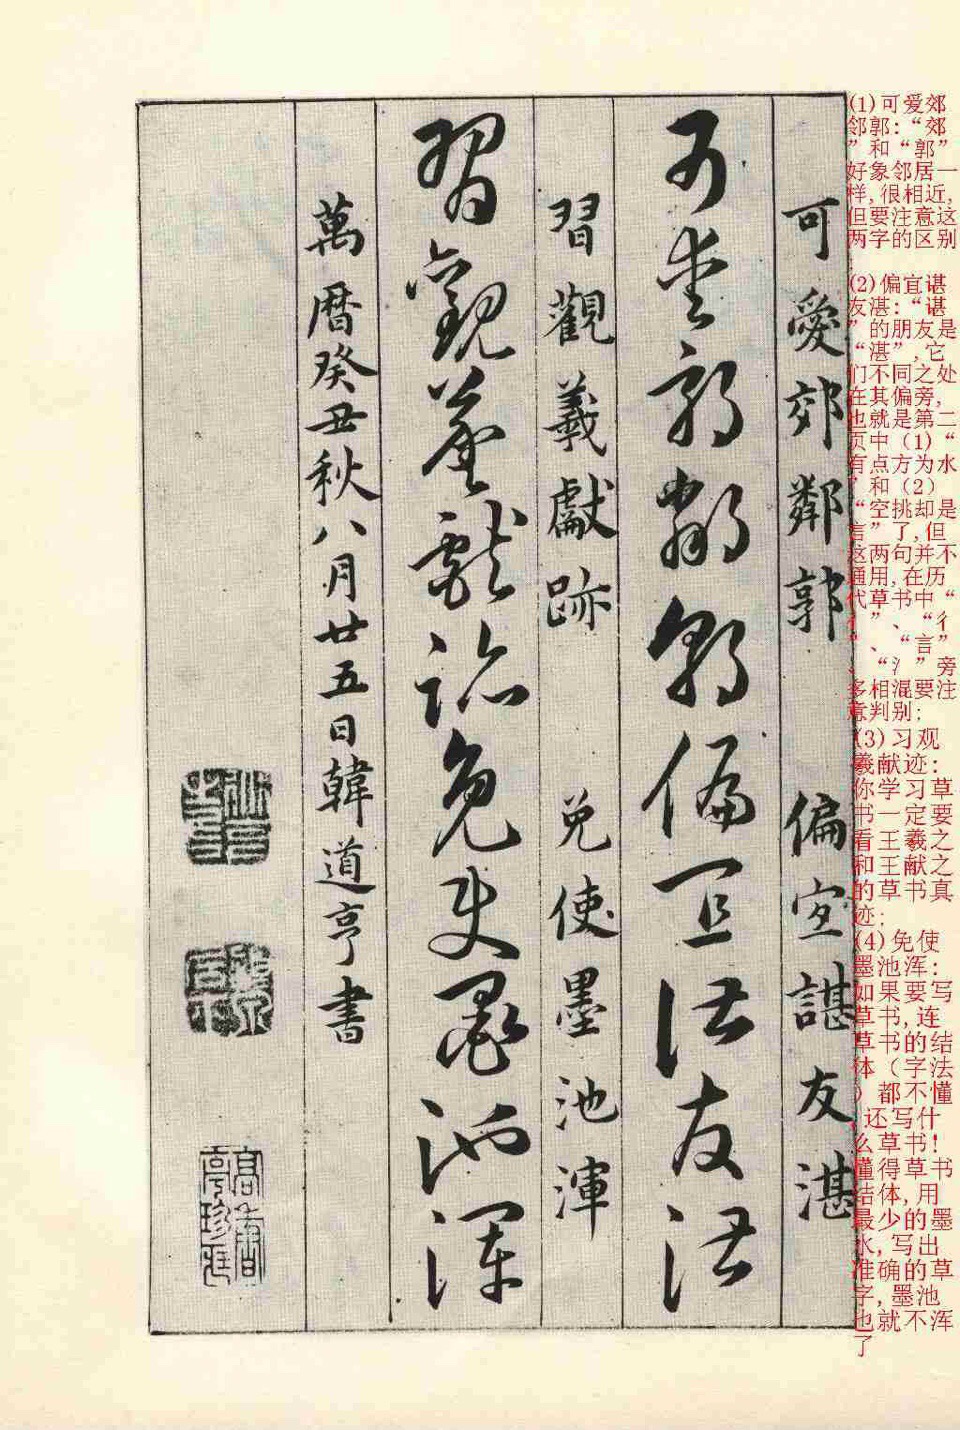 (1)可爱郊
邻郭:“郊
”和“郭”
好象邻居一
样,很相近,
但要注意这
两字的区别
(2)偏宜谌
友湛:“谌
”的朋友是
“湛”,它
们不同之处
在其偏旁,
也就是第二
页中（1)“
有点方为水
”和（2）
“空挑却是
言”了,但
这两句并不
通用,在历
代草书中“
亻”、“彳
”、“言”
、“氵”旁
多相混要注
意判别;
(3)习观
羲献迹:
你学习草
书一定要
看王羲之
和王献之
的草书真
迹;
(4)免使
墨池浑:
如果要写
草书,连
草书的结
体（字法
）都不懂
,还写什
么草书!
懂得草书
结体,用
最少的墨
水,写出
准确的草
字,墨池
也就不浑
了
可愛郊鄰郭 偏宜諶友湛
可愛郊鄰郭偏宜諶友湛
習觀羲獻跡 免使墨池渾
習觀羲獻跡免使墨池渾
萬曆癸丑秋八月廿五日韓道亨書